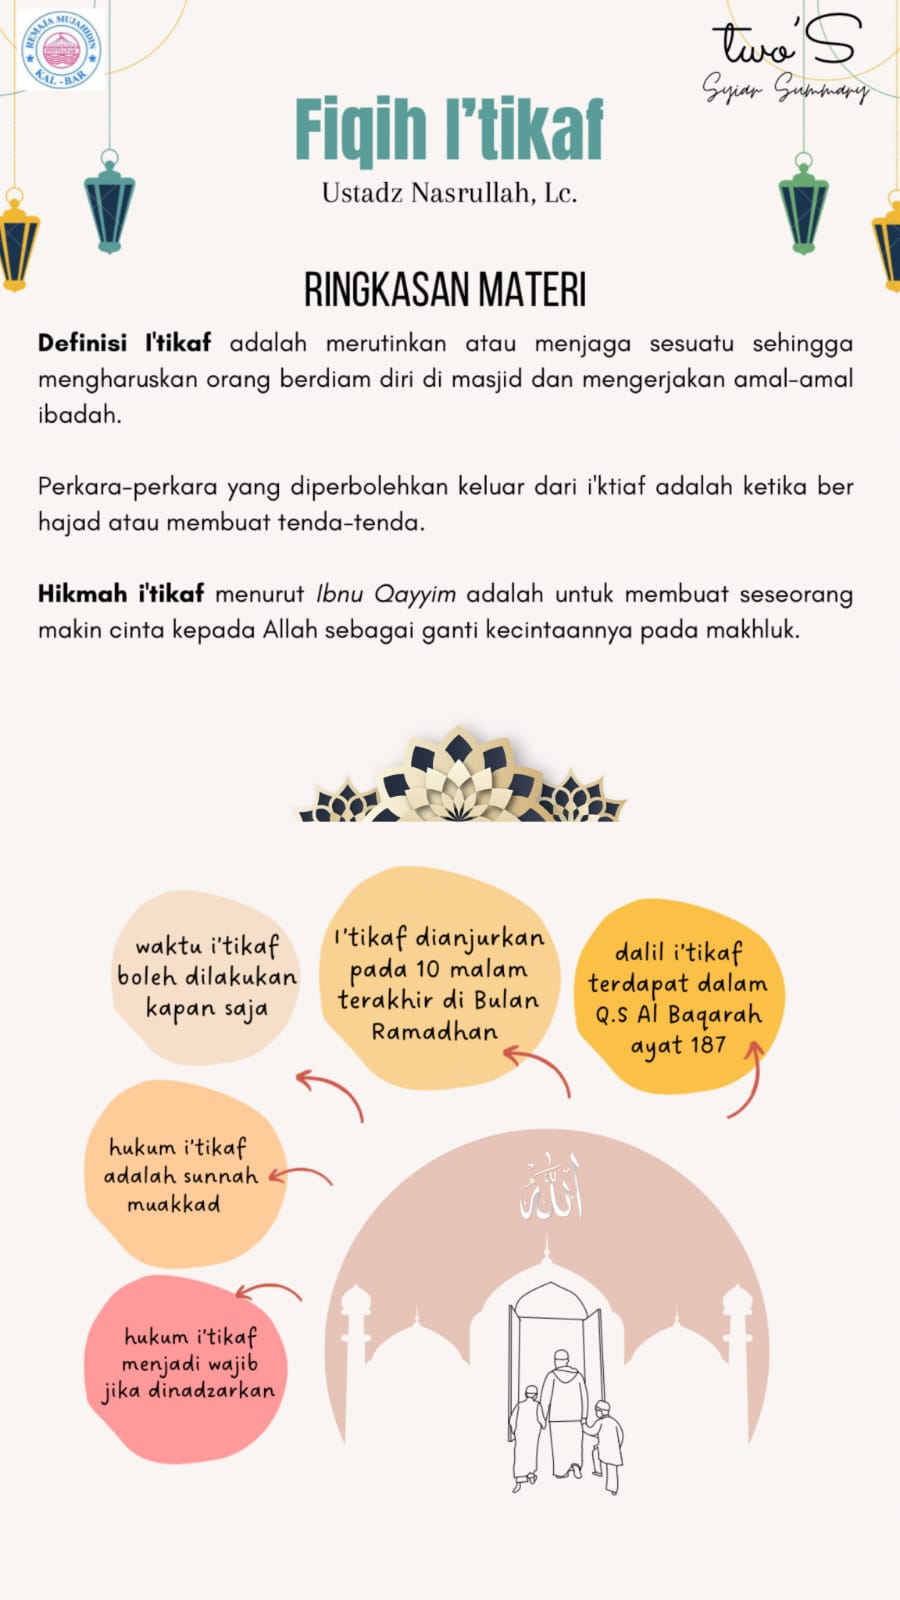 REMAJA MUJAHIDIN
PONTIANAK
KAL-BAR
two'S
Syiar Summary
Fiqih I'tikaf
Ustadz Nasrullah, Lc.
RINGKASAN MATERI
Definisi I'tikaf adalah merutinkan atau menjaga sesuatu sehingga
mengharuskan orang berdiam diri di masjid dan mengerjakan amal-amal
ibadah.
Perkara-perkara yang diperbolehkan keluar dari i'ktiaf adalah ketika ber
hajad atau membuat tenda-tenda.
Hikmah i'tikaf menurut Ibnu Qayyim adalah untuk membuat seseorang
makin cinta kepada Allah sebagai ganti kecintaannya pada makhluk.
waktu i'tikaf
boleh dilakukan
kapan saja
I'tikaf dianjurkan
pada 10 malam
terakhir di Bulan
Ramadhan
dalil i'tikaf
terdapat dalam
Q.S Al Baqarah
ayat 187
hukum i'tikaf
adalah sunnah
muakkad
hukum i'tikaf
menjadi wajib
jika dinadzarkan
الله